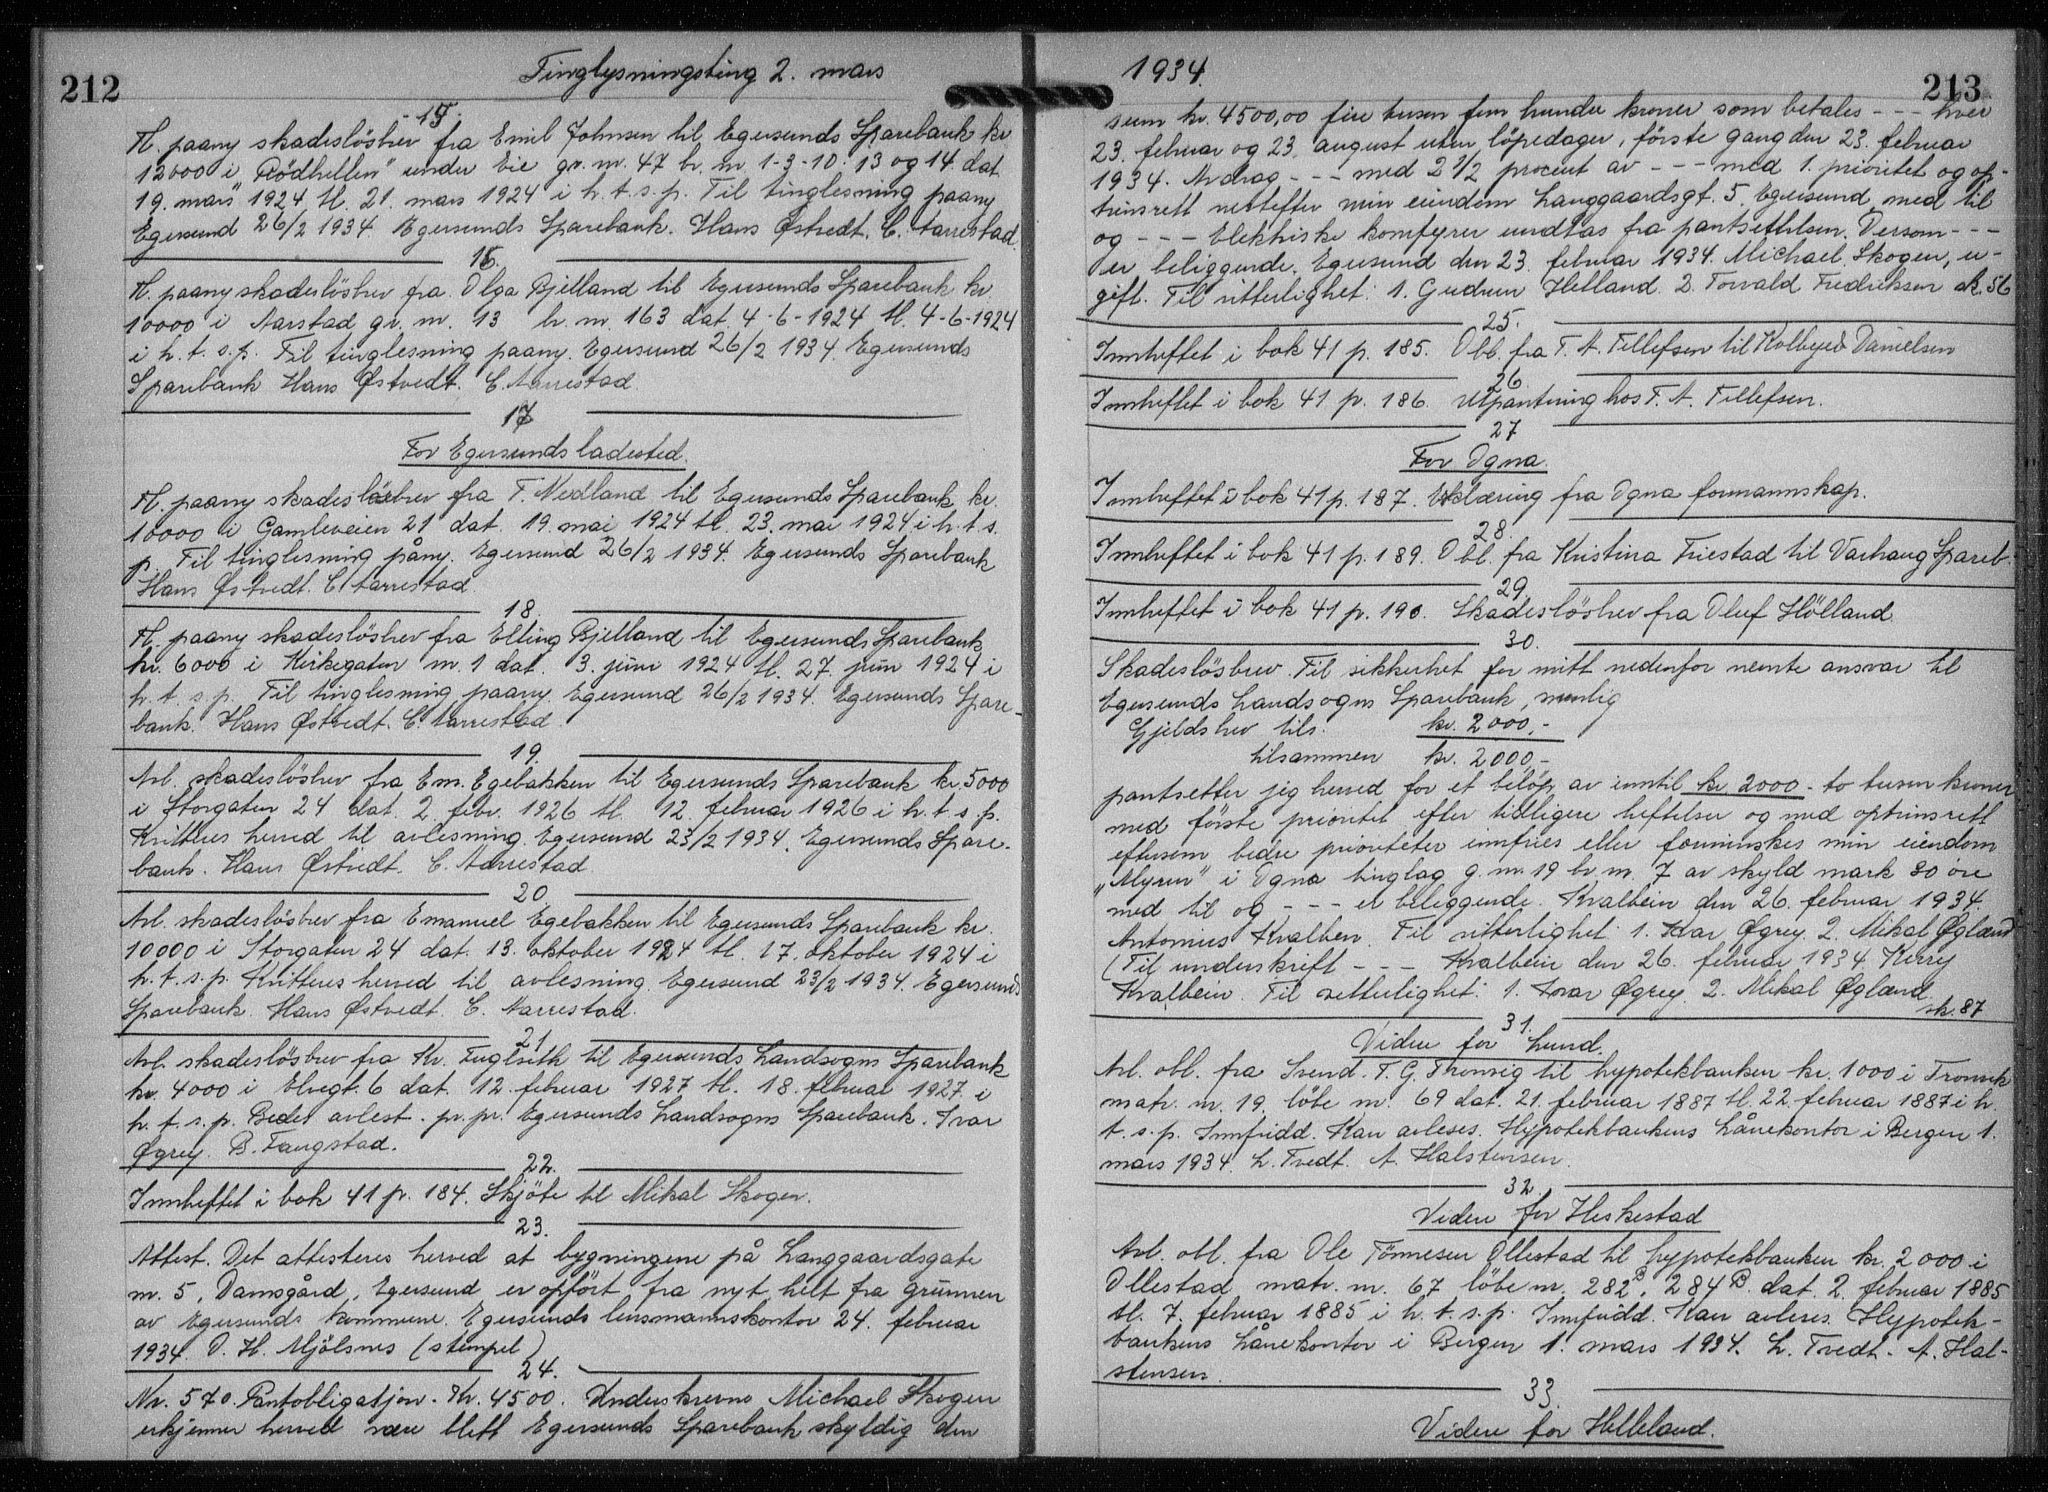 212
Tinglysningsting 2. mars
15.
Tl. paany skadeslösbrev fra Emil Johnsen til Egersunds Sparebank kr.
12000 i "Rödhellen" under Eie gr. nr. 47 br. nr. 1-3-10-13 og 14 dat.
19. mars 1924 tl. 21. mars 1924 i h. t. s. p. Til tinglesning paany
Egersund 26/2 1934. Egersunds Sparebank. Hans Østvedt. C. Aarrestad.
16.
Tl. paany skadeslösbrev fra Olga Bjelland til Egersunds Sparebank kr.
10000 i Aarstad gr. nr. 13 br. nr. 163 dat. 4-6-1924 tl. 4-6-1924
i h. t. s. p. Til tinglesning paany. Egersund 26/2 1934. Egersunds
Sparebank Hans Østvedt. C. Aarrestad.
17
For Egersunds ladested.
Tl. paany skadeslösbrev fra T. Nedland til Egersunds Sparebank kr.
10000 i Gamleveien 21 dat. 19. mai 1924 tl. 23. mai 1924 i h. t. s.
p. Til tinglesning påny. Egersund 26/2 1934. Egersunds Sparebank
Hans Østvedt. C. Aarrestad.
18.
Tl. paany skadeslösbrev fra Elling Bjelland til Egersunds Sparebank
kr. 6000 i Kirkegaten nr. 1 dat. 3. juni 1924 tl. 27. juni 1924 i
h. t. s. p. Til tinglesning paany. Egersund 26/2 1934. Egersunds Spare-
bank. Hans Østvedt. C. Aarrestad
19.
Avl. skadeslösbrev fra Em. Egebakken til Egersunds Sparebank kr. 5000
i Storgaten 24 dat. 2. febr. 1926 tl. 12. februar 1926 i h. t. s. p.
Kvitteres herved til avlesning. Egersund 23/2 1934. Egersunds Spare-
bank. Hans Østvedt. C. Aarrestad
20
Avl. skadeslösbrev fra Emanuel Egebakken til Egersunds Sparebank kr.
10000 i Storgaten 24 dat. 13. oktober 1924 tl. 17. oktober 1924 i
h. t. s. p. Kvitteres herved til avlesning. Egersund 23/2 1934. Egersunds
Sparebank. Hans Østvedt. C. Aarrestad.
21
Avl. skadeslösbrev fra Kr. Fuglseth til Egersunds Landsogns Sparebank
kr. 4000 i Elvegt. 6 dat. 12. februar 1927 tl. 18. februar 1927 i
h. t. s. p. Bedes avlest. pr. pr. Egersunds Landsogns Sparebank. Ivar
Øgrey. B. Tangstad.
22.
Innheftet i bok 41 p. 184. Skjöte til Mikal Skogen.
23.
Attest. Det attesteres herved at bygningene på Langgaardsgate
nr. 5, Damsgård, Egersund er opfört fra nyt helt fra grunnen
av Egersunds kommune. Egersunds lensmannskontor 24. februar
1934. O. H. Mjölsnes (stempel)
24.
Nr. 570. Pantobligasjon. Kr. 4500. Underskrevne Michael Skogen
erkjenner herved være blitt Egersunds Sparebank skyldig den
1934.
213
sum kr. 4500,00 fire tusen fem hundre kroner som betales - - - hver
23. februar og 23. august uten löpedager, förste gang den 23. februar
1934. Avdrag - - - med 2 1/2 procent av - - - med 1. prioritet og op-
trinsrett nestefter min eiendom Langgaardsgt. 5. Egersund, med til
og - - - Elektriske komfyrer undtas fra pantsettelsen. Dersom - - -
er beliggende. Egersund den 23. februar 1934. Michael Skogen, u-
gift. Til vitterlighet: 1. Gudrun Helland. 2. Torvald Fredriksen sk. 56
25.
Innheftet i bok 41 p. 185. Obl. fra T. A. Tillefsen til Kolbjørn Danielsen
26.
Innheftet i bok 41 p. 186. Utpantning hos T. A. Tillefsen.
27
For Ogna.
Innheftet i bok 41 p. 187. Erklæring fra Ogna formannskap.
28.
Innheftet i bok 41 p. 189. Obl. fra Kristina Friestad til Varhaug Spareb.
29
Innheftet i bok 41 p. 190. Skadeslösbrev fra Oluf Hölland
30.
Skadeslösbrev. Til sikkerhet for mitt nedenfor nevnte ansvar til
Egersunds Landsogns Sparebank, nemlig
Gjeldsbrev tils. kr. 2000,-
tilsammen kr. 2000,-
pantsetter jeg herved for et belöp av inntil kr. 2000 - to tusen kroner
med förste prioritet efter tidligere heftelser og med optrinsrett
eftersom bedre prioriteter innfries eller forminskes min eiendom
"Myren" i Ogna tinglag g. nr. 19 br. nr. 7 av skyld mark 80 öre
med til og - - - et beliggende. Kvalbein den 26. februar 1934.
Antonius Kvalben. Til vitterlighet: 1. Ivar Øgrey. 2. Mikal Øglænd
(Til underskrift - - - Kvalbein den 26. februar 1934. Kerry
Kvalbein. Til vitterlighet: 1. Ivar Øgrey. 2. Mikal Øglænd.
sk. 87
31.
Videre for Lund.
Avl. obl. fra Svend. T. G. Thorsvig til hypotekbanken kr. 1000 i Tronvik
matr. nr. 19. löbe nr. 69 dat. 21. februar 1887 tl. 22. februar 1887 i h.
t. s. p. Innfridd. Kan avleses. Hypotekbankens Lånekontor i Bergen 1.
mars 1934. L. Tvedt. A. Halstensen.
32.
Videre for Heskestad
Avl. obl. fra Ole Tönnesen Ollestad til hypotekbanken kr. 2000 i
Ollestad matr. nr. 67 löbe nr. 282 B, 284 B. dat. 2. februar 1885
tl. 7. februar 1885 i h. t. s. p. Innfridd. Kan avleses. Hypotek-
bankens Lånekontor i Bergen 1. mars 1934. L. Tvedt. A. Hal-
stensen.
33.
Videre for Helleland.